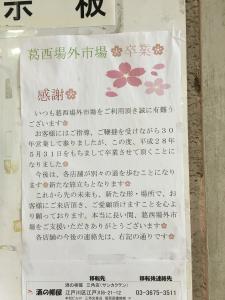 示板
葛西場外市場 卒業
感謝
いつも葛西場外市場をご利用頂き誠に有難う
ございます
お客様にはご指導、ご鞭撻を受けながら30
年営業して参りましたが、この度、平成28年
5月31日をもちまして卒業させて頂くことに
なりました
今後は、各店舗が別々の道を歩むことになり
ます 新たな旅立ちとなります
これから先の未来も、新たな形・場所で、お
客様にご来店頂き、ご愛顧頂けますことを心よ
り願っております。本当に長い間、葛西場外市
場をご支援いただきありがとうございます
各店舗の今後の連絡先は、右記の通りです
移転先
移転後連絡先
酒の柳屋
江戸川区江戸川6-21-12
03-3675-3511